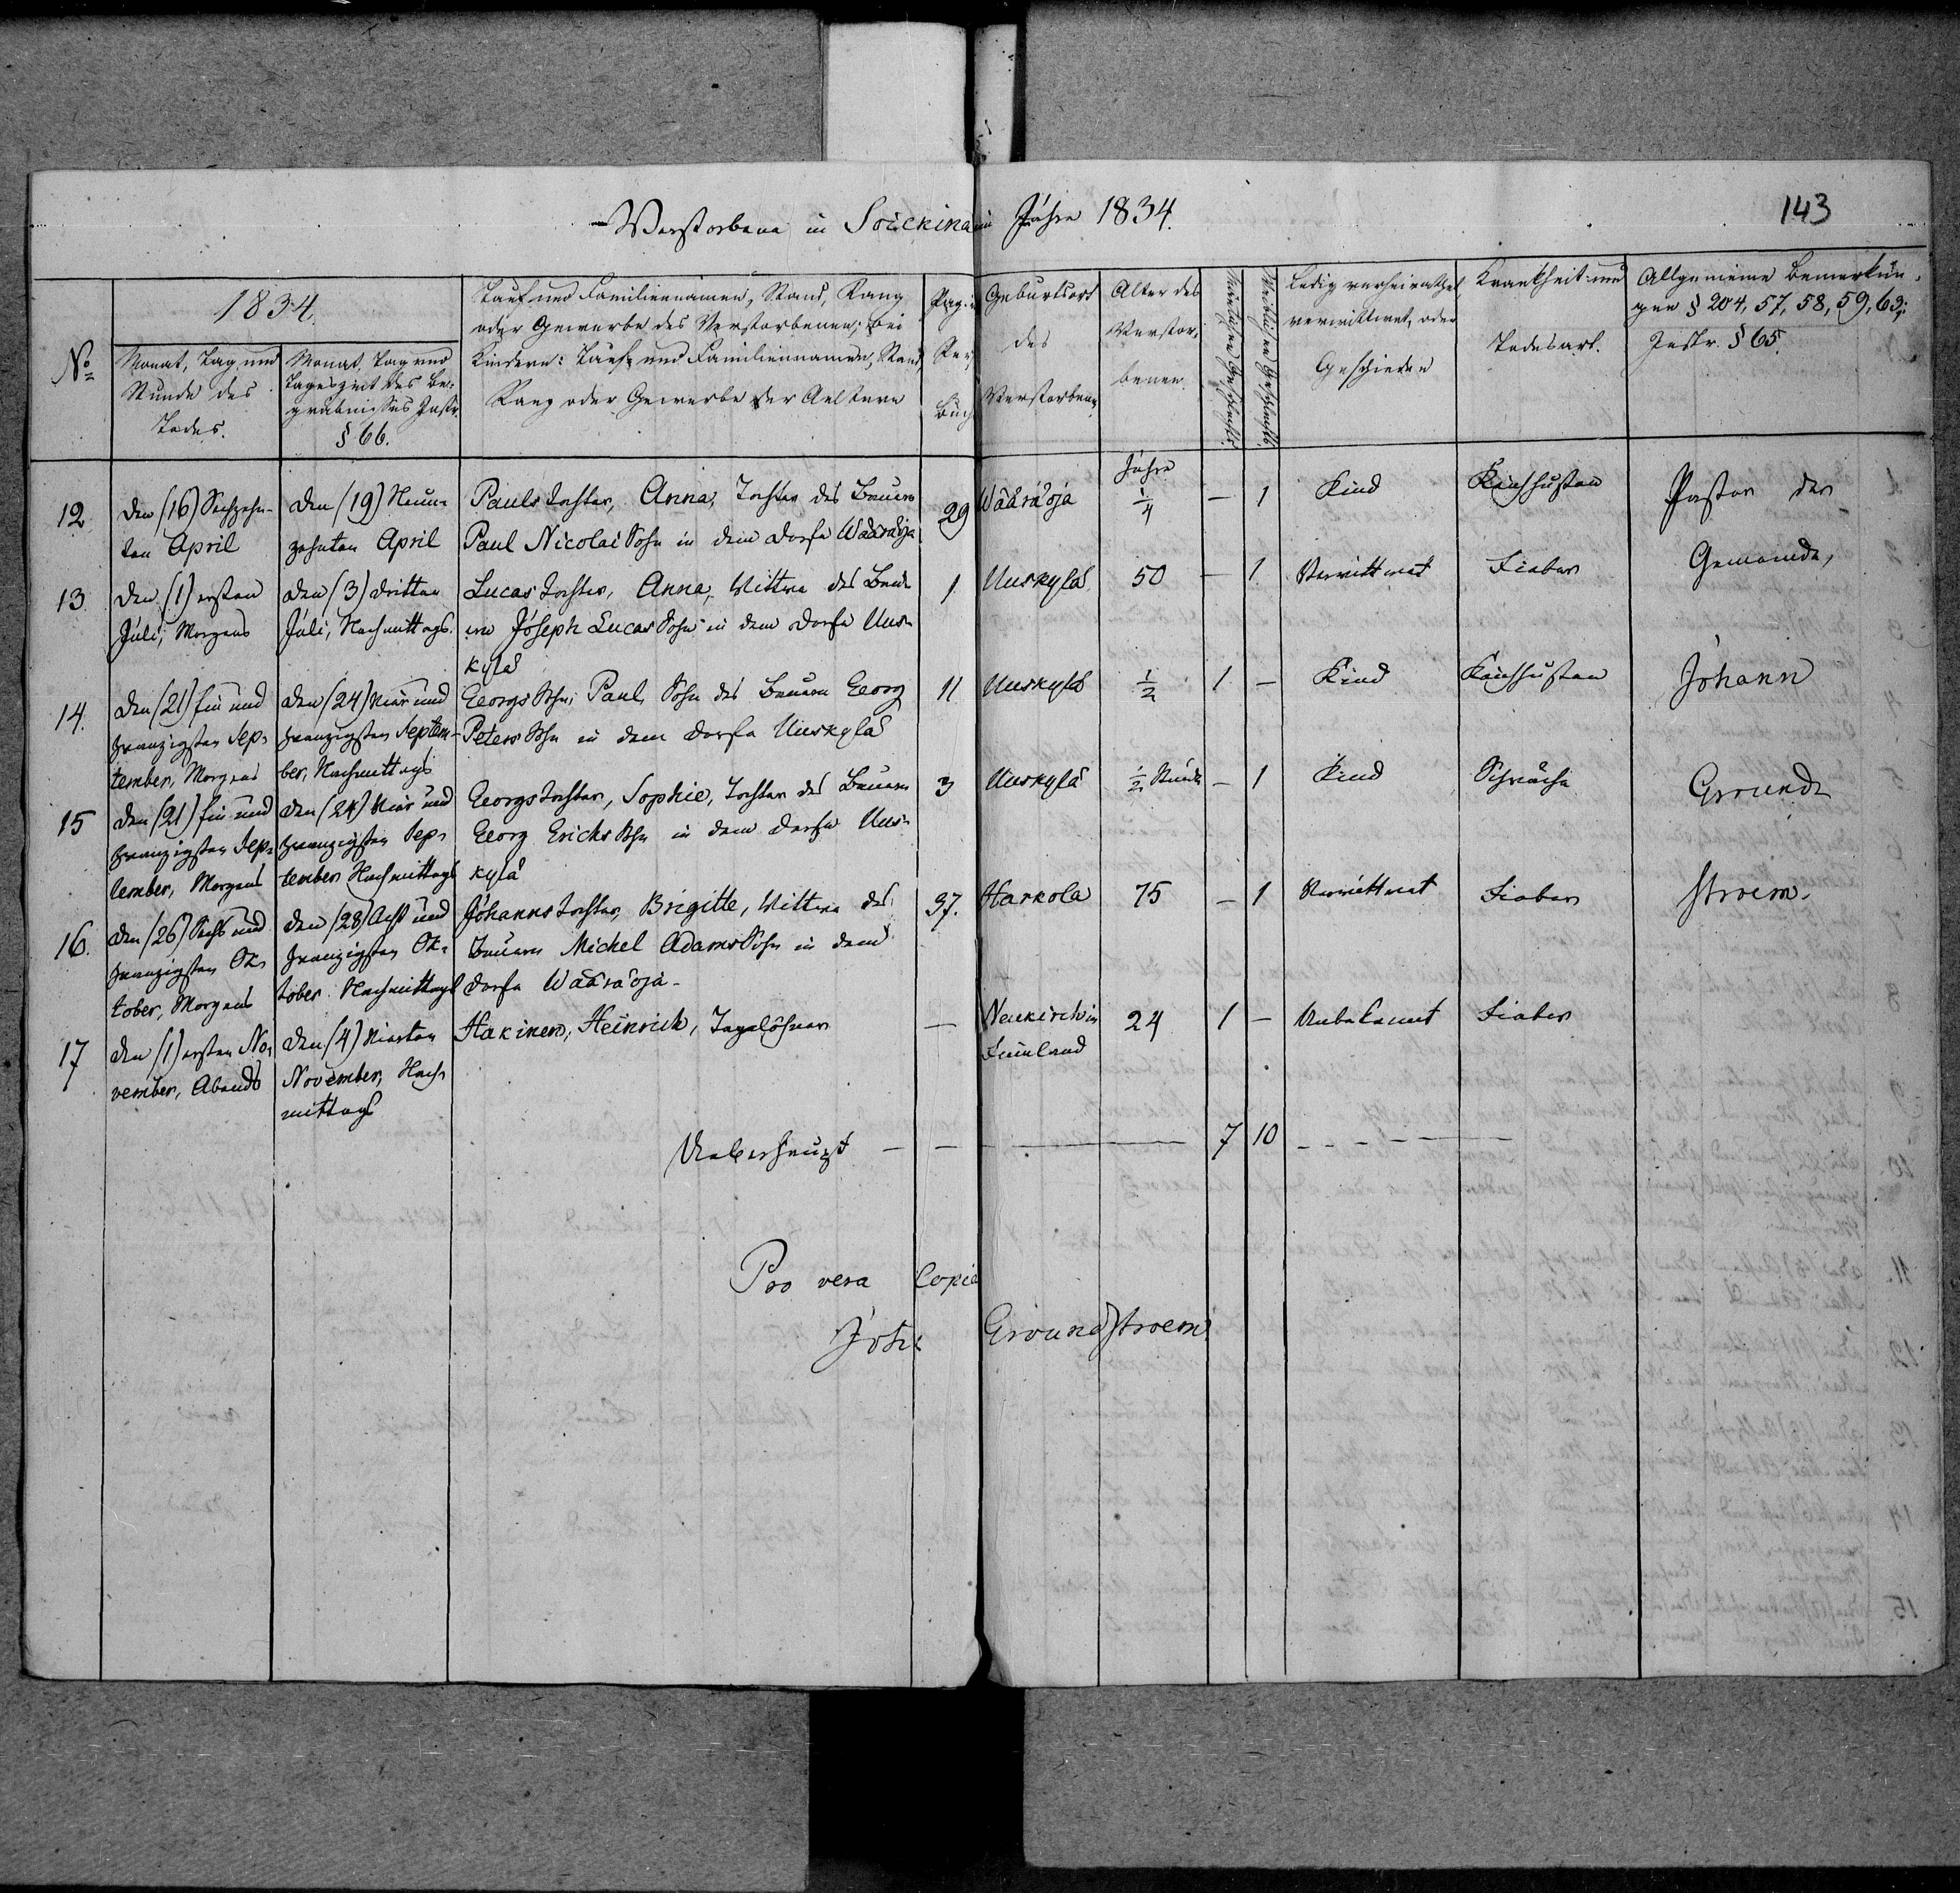 Verstorbene in Soickina im Jahre 1834.
143
No
1834.
Monat, Tag und
Stunde des
Todes.
Monat, Tag und
Tageszeit des Be-
gräbnisses Instr.
§ 66.
Tauf- und Familiennamen, Stand, Rang
oder Gewerbe des Verstorbenen; bei
Kindern: Tauf- und Familiennamen, Stand,
Rang oder Gewerbe der Aeltern
Pag.
Buch
Geburtsort
des
Verstorbenen
Alter des
Verstor-
benen.
Männlichen Geschlechts.
Weiblichen Geschlechts.
Ledig verheirathet,
verwittwet, oder
Geschieden
Krankheit und
Todesart.
Allgemeine Bemerkun-
gen § 204, 57, 58, 59, 63;
Instr. § 65.
12.
den (16) Sechzehn-
ten April
den (19) Neun-
zehnten April
Pauls Tochter, Anna, Tochter des Bauern
Paul Nicolai Sohn in dem Dorfe Wääräoja
29
Wääräoja
Jahre
1/4
— 1
Kind
Keichhusten
Pastor der
13.
den (1) ersten
Juli, Morgens
den (3) dritten
Juli, Nachmittags.
Lucas Tochter, Anna, Wittwe des Bau-
ern Joseph Lucas Sohn in dem Dorfe Uus-
kylä
1
Uuskylä
50
— 1
Verwittwet
Fieber
Gemeinde,
14.
den (21) Ein und
zwanzigsten Sep-
tember, Morgens
den (24) Vier und
zwanzigsten Septem-
ber, Nachmittags
Georgs Sohn, Paul, Sohn des Bauern Georg
Peters Sohn in dem Dorfe Uuskylä
11
Uuskylä
1/2
1 —
Kind
Keichhusten
Johann
15
den (21) Ein und
zwanzigsten Sep-
tember, Morgens
den (24) Vier und
zwanzigsten Sep-
tember Nachmittags
Georgs Tochter, Sophie, Tochter des Bauern
Georg Erichs Sohn in dem Dorfe Uus-
kylä
3
Uuskylä
1/2 Stunde
— 1
Kind
Schwäche
Grund-
16.
den (26) Sechs und
zwanzigsten Ok-
tober, Morgens
den (28) Acht und
zwanzigsten Ok-
tober Nachmittags
Johanns Tochter, Brigitte, Wittwe des
Bauern Michel Adams Sohn in dem
Dorfe Wääräoja.
37.
Harkola
75
— 1
Verwittwet
Fieber
stroem.
17
den (1) ersten No-
vember, Abends
den (4) Vierten
November, Nach-
mittags
Hakinen, Heinrich, Tagelöhner
—
Neukirch in
Finnland
24
1 —
Unbekannt
Fieber
Ueberhaupt — — 7 10
Pro vera Copia
Joh: Groundstroem